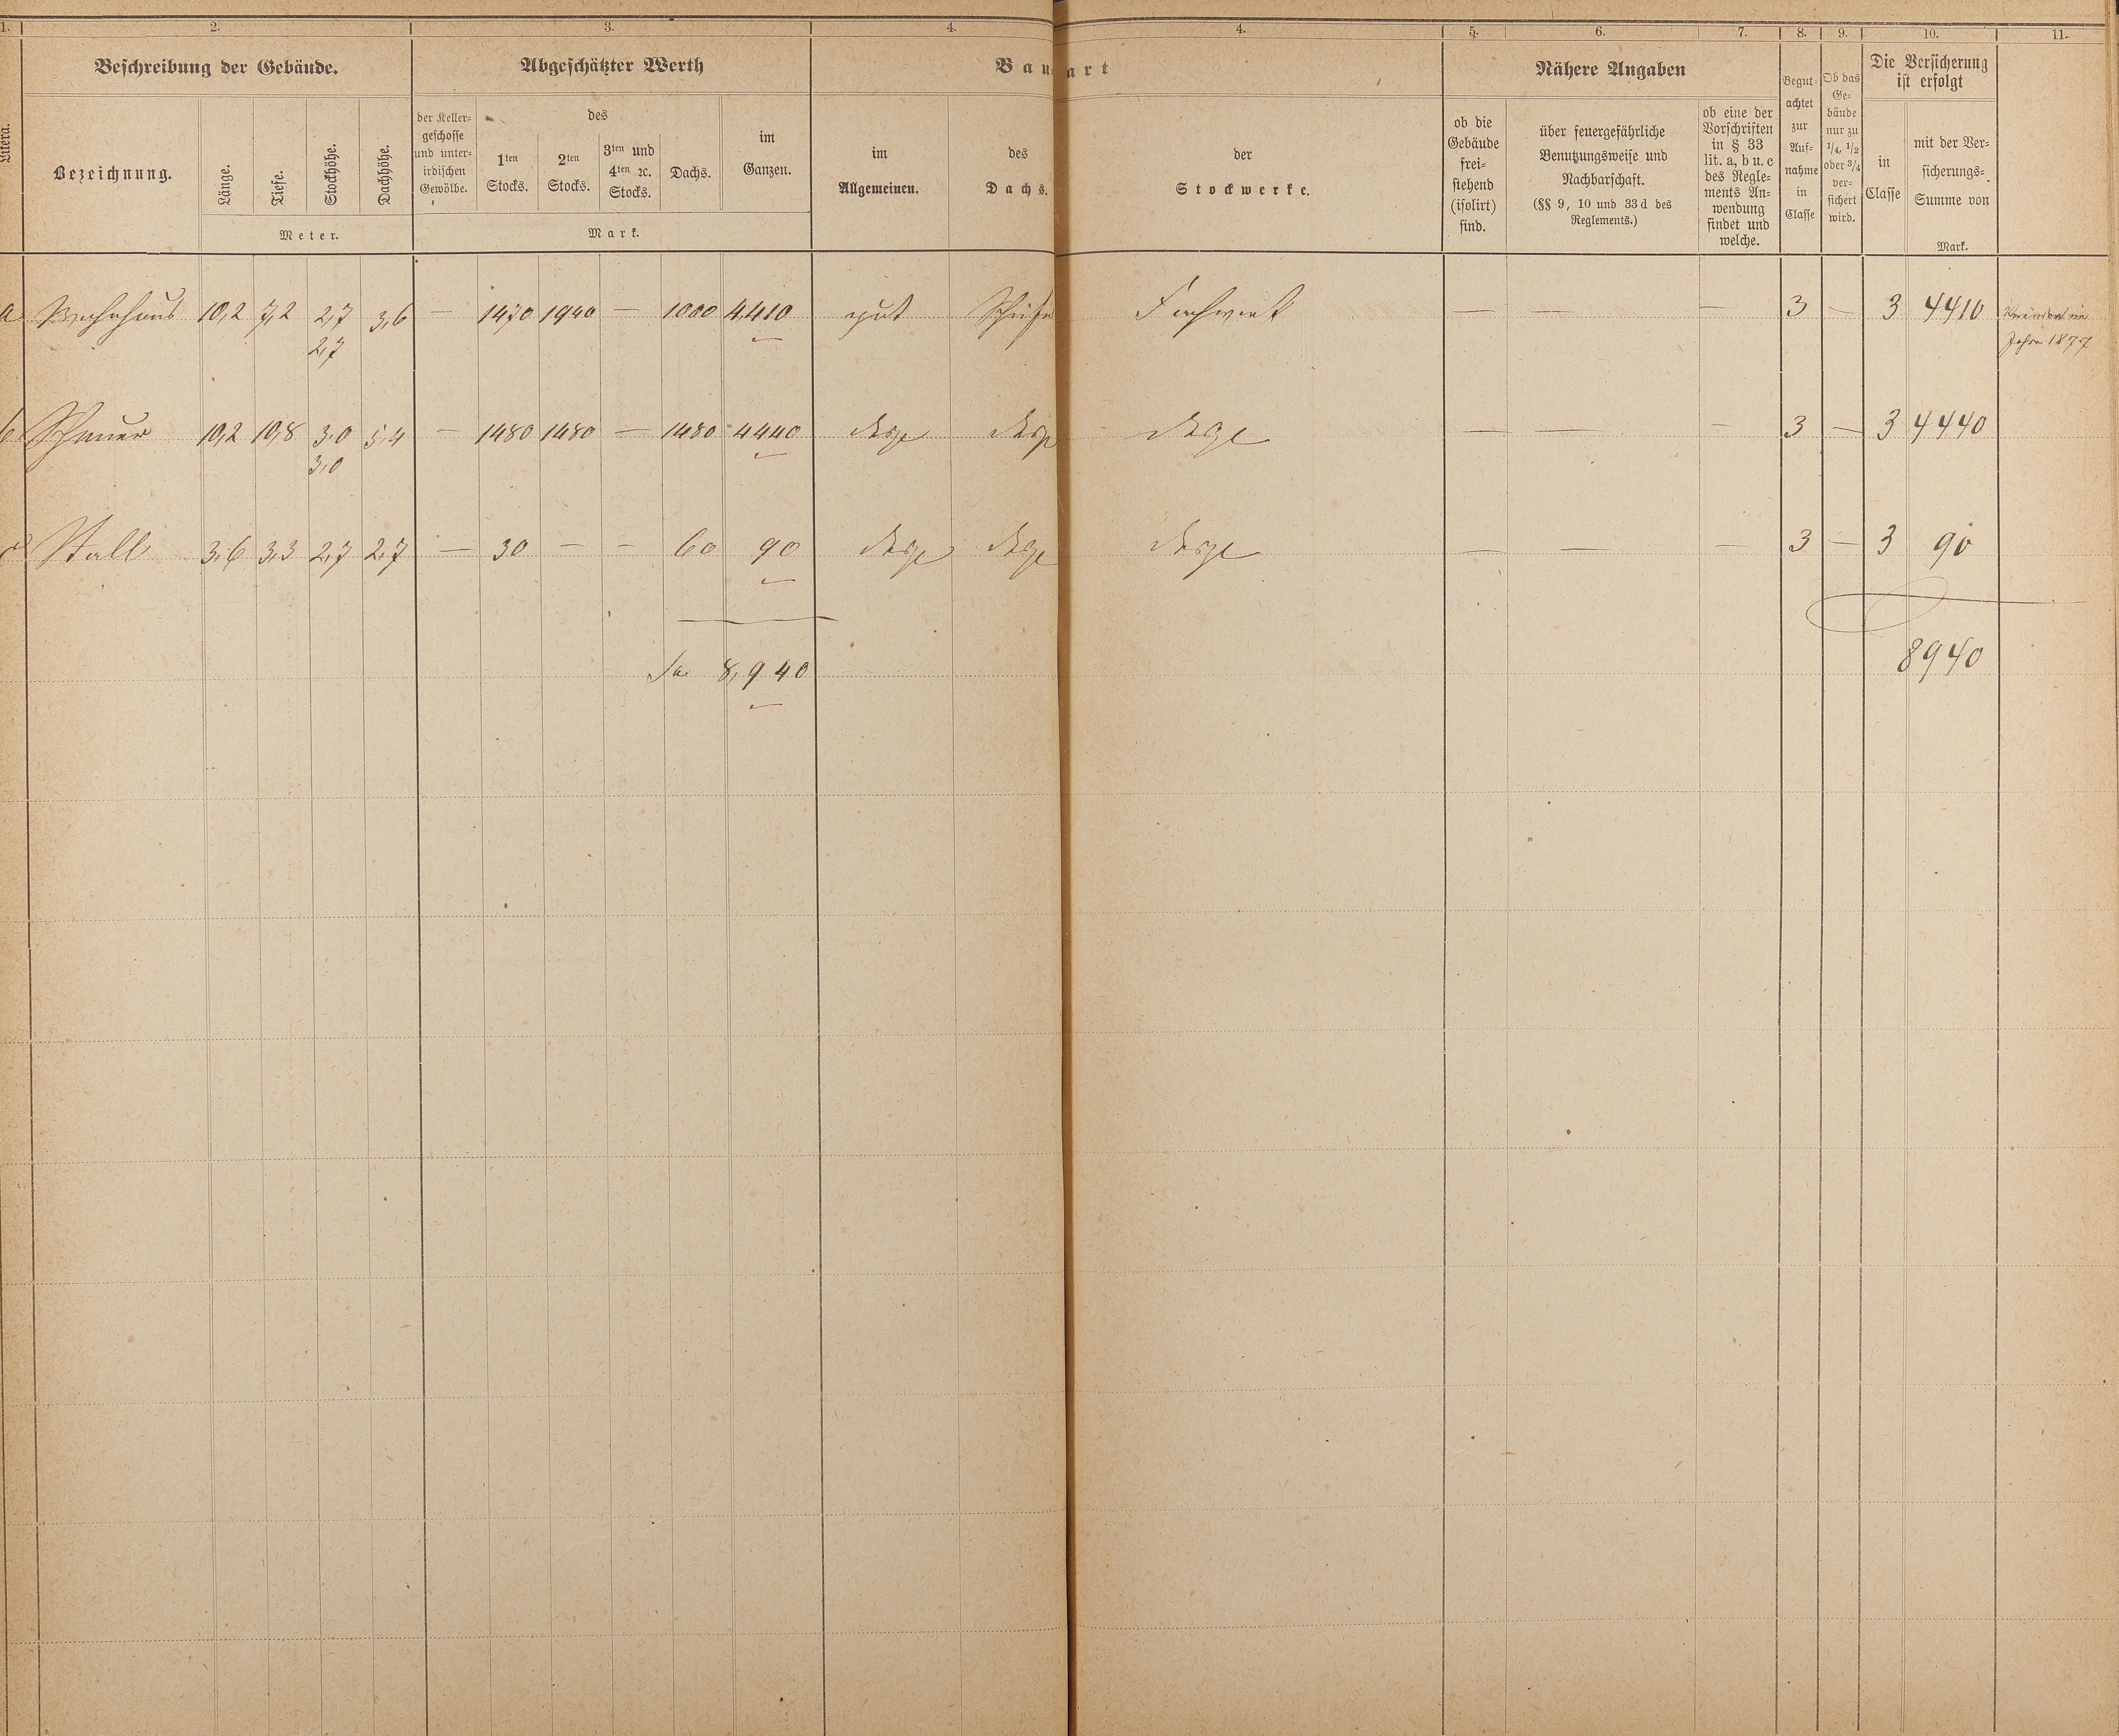 1. 2. 3. 4. 4. 5. 6. 7. 8. 9. 10. 11.
Litera.
Beschreibung der Gebäude.
Bezeichnung.
Länge.
Tiefe.
Stockhöhe.
Dachhöhe.
Meter.
Abgeschätzter Werth
der Keller-
geschosse
und unter-
irdischen
Gewölbe.
des
1ten
Stocks.
2ten
Stocks.
3ten und
4ten ꝛc.
Stocks.
Dachs.
im
Ganzen.
Mark.
Bauart
im
Allgemeinen.
des
Dachs.
der
Stockwerke.
ob die
Gebäude
frei-
stehend
(isolirt)
sind.
Nähere Angaben
über feuergefährliche
Benutzungsweise und
Nachbarschaft.
(§§ 9, 10 und 33 d des
Reglements.)
ob eine der
Vorschriften
in § 33
lit. a, b u. c
des Regle-
ments An-
wendung
findet und
welche.
Begut-
achtet
zur
Auf-
nahme
in
Classe
Ob das
Ge-
bäude
nur zu
1/4, 1/2
oder 3/4
ver-
sichert
wird.
Die Versicherung
ist erfolgt
in
Classe
mit der Ver-
sicherungs-
Summe von
Mark.
a Wohnhaus 10,2 7,2 2,7 3,6 — 1470 1940 — 1000 4,410 gut Schiefer Fachwerk — — — 3 — 3 4410 Verändert im
2,7 Jahre 1877
b Scheuer 10,2 10,8 3,0 5,4 — 1480 1480 — 1480 4440 desgl desgl desgl — — — 3 — 3 4440
3,0
c Stall 3,6 3,3 2,7 2,7 — 30 — — 60 90 desgl desgl desgl — — — 3 — 3 90
Sa 8,940 8940